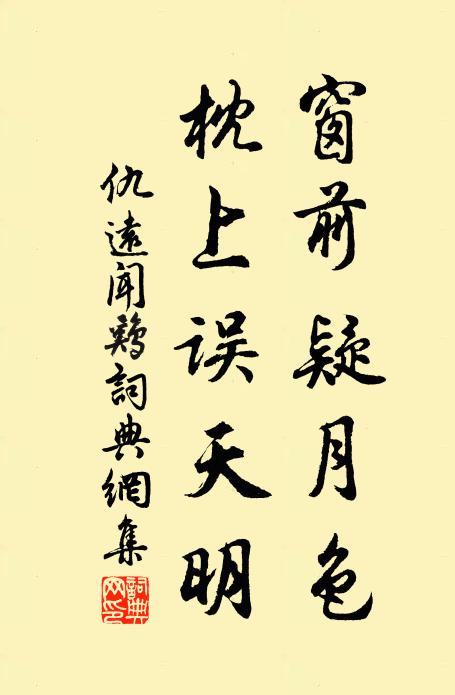 窗前疑月色
枕上误天明
仇遠聞鷄詞典網集
詞典網印